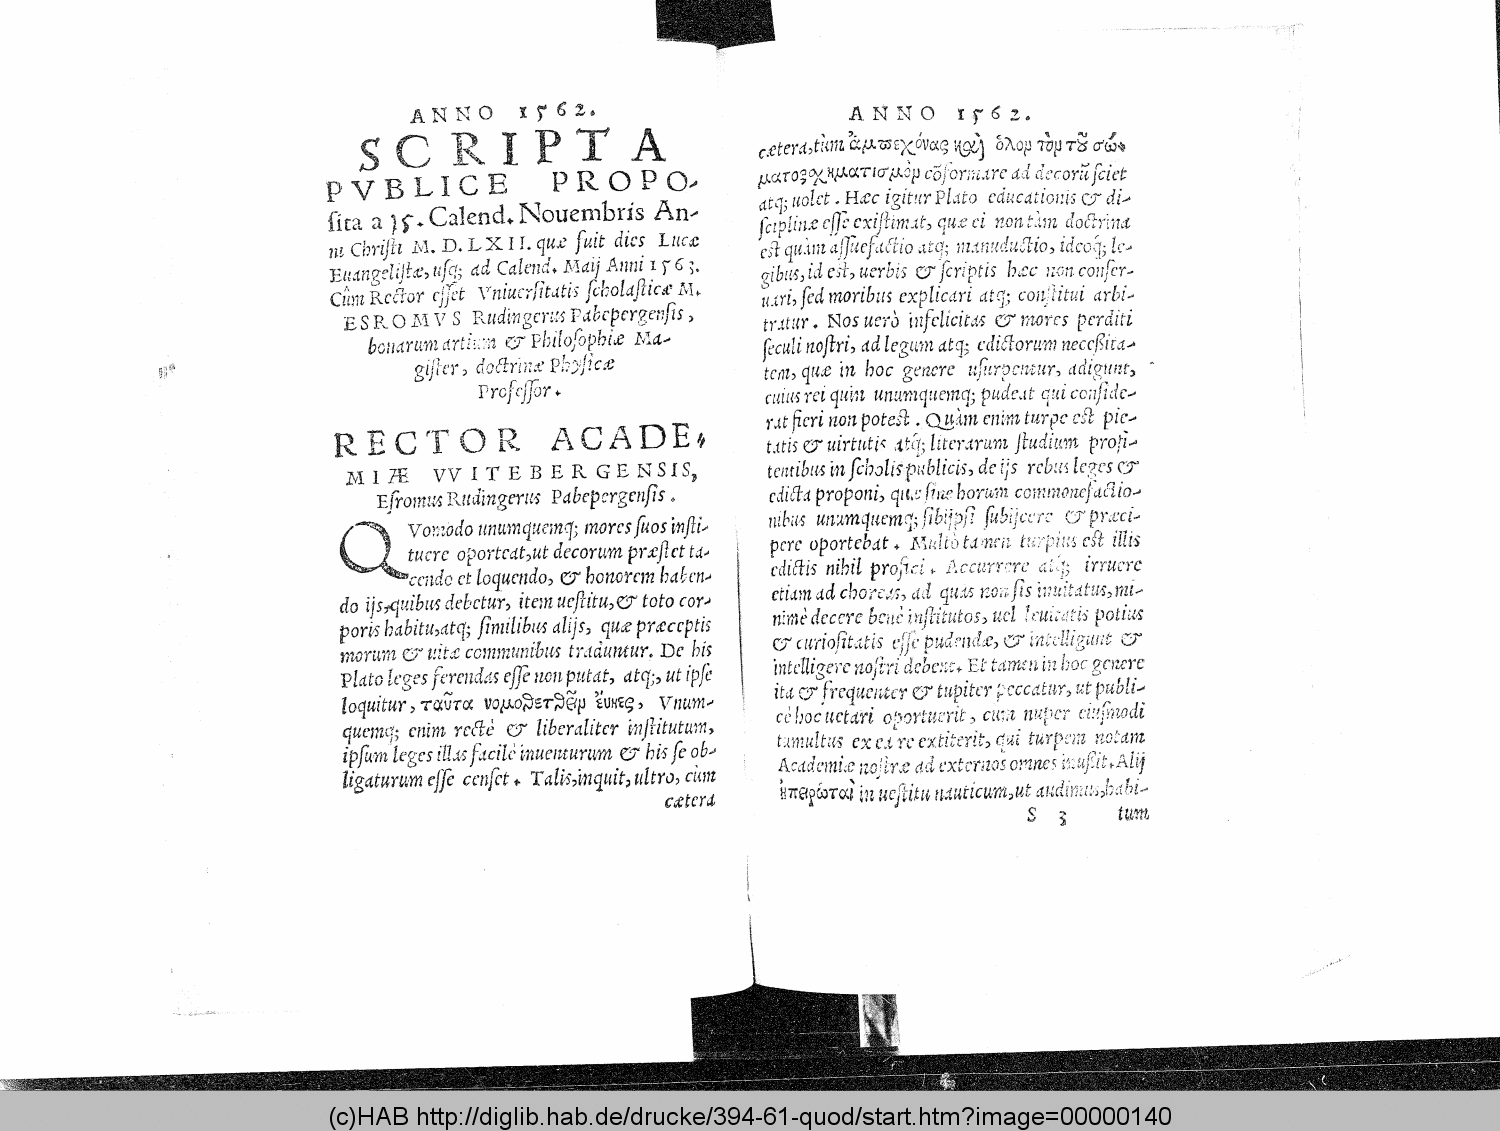 ANNO 1562.
SCRIPTA
PVBLICE PROPO-
ſita a 15. Calend. Nouembris An-
ni Chriſti M. D. LXII. quæ fuit dies Lucæ
Euangeliſtæ, uſq; ad Calend. Maij Anni 1563.
Cùm Rector eſſet Vniuerſitatis ſcholaſticæ M.
ESROMVS Rudingerus Pabepergenſis,
bonarum artium & Philoſophiæ Ma-
giſter, doctrinæ Phyſicæ
Profeſſor.
RECTOR ACADE-
MIÆ VVITEBERGENSIS,
Eſromus Rudingerus Pabepergenſis.
QVomodo unumquemq; mores ſuos inſti-
tuere oporteat, ut decorum præſtet ta-
cendo et loquendo, & honorem haben-
do ijs, quibus debetur, item ueſtitu, & toto cor-
poris habitu, atq; ſimilibus alijs, quæ præceptis
morum & uitæ communibus traduntur. De his
Plato leges ferendas eſſe non putat, atq;, ut ipſe
loquitur, ταῦτα νομοθετεῖν ἔυηθες, Vnum-
quemq; enim rectè & liberaliter inſtitutum,
ipſum leges illas facilè inuenturum & his ſe ob-
ligaturum eſſe cenſet. Talis, inquit, ultro, cùm
cætera
ANNO 1562.
cætera, tùm ἀμπεχόνας καὶ ὅλον τὸν τοῦ σώ-
ματος χηματισμὸν cõformare ad decorũ ſciet
atq; uolet. Hæc igitur Plato educationis & di-
ſciplinæ eſſe exiſtimat, quæ ei non tàm doctrina
eſt quàm aſſuefactio atq; manuductio, ideoq́; le-
gibus, id eſt, uerbis & ſcriptis hæc non conſer-
uari, ſed moribus explicari atq; conſtitui arbi-
tratur. Nos uerò infelicitas & mores perditi
ſeculi noſtri, ad legum atq; edictorum neceßita-
tem, quæ in hoc genere uſurpentur, adigunt,
cuius rei quin unumquemq; pudeat qui conſide-
rat fieri non poteſt. Quàm enim turpe eſt pie-
tatis & uirtutis atq́; literarum ſtudium profi-
tentibus in ſcholis publicis, de ijs rebus leges &
edicta proponi, quæ ſine horum commonefactio-
nibus unumquemq; ſibijpſi ſubijcere & præci-
pere oportebat. Multò tamen turpius eſt illis
edictis nihil profici. Accurrere atq́; irruere
etiam ad choreas, ad quas non ſis inuitatus, mi-
nimè decere benè inſtitutos, uel leuitatis potius
& curioſitatis eſſe pudendæ, & intelligunt &
intelligere noſtri debent. Et tamen in hoc genere
ita & frequenter & tupiter peccatur, ut publi-
cè hoc uetari oportuerit, cum nuper eiuſmodi
tumultus ex ea re extiterit, qui turpem notam
Academiæ noſtræ ad externos omnes inuſit. Alij
in ueſtitu nauticum, ut audimus, habi-
S 3 tum
(c)HAB http://diglib.hab.de/drucke/394-61-quod/start.htm?image=00000140